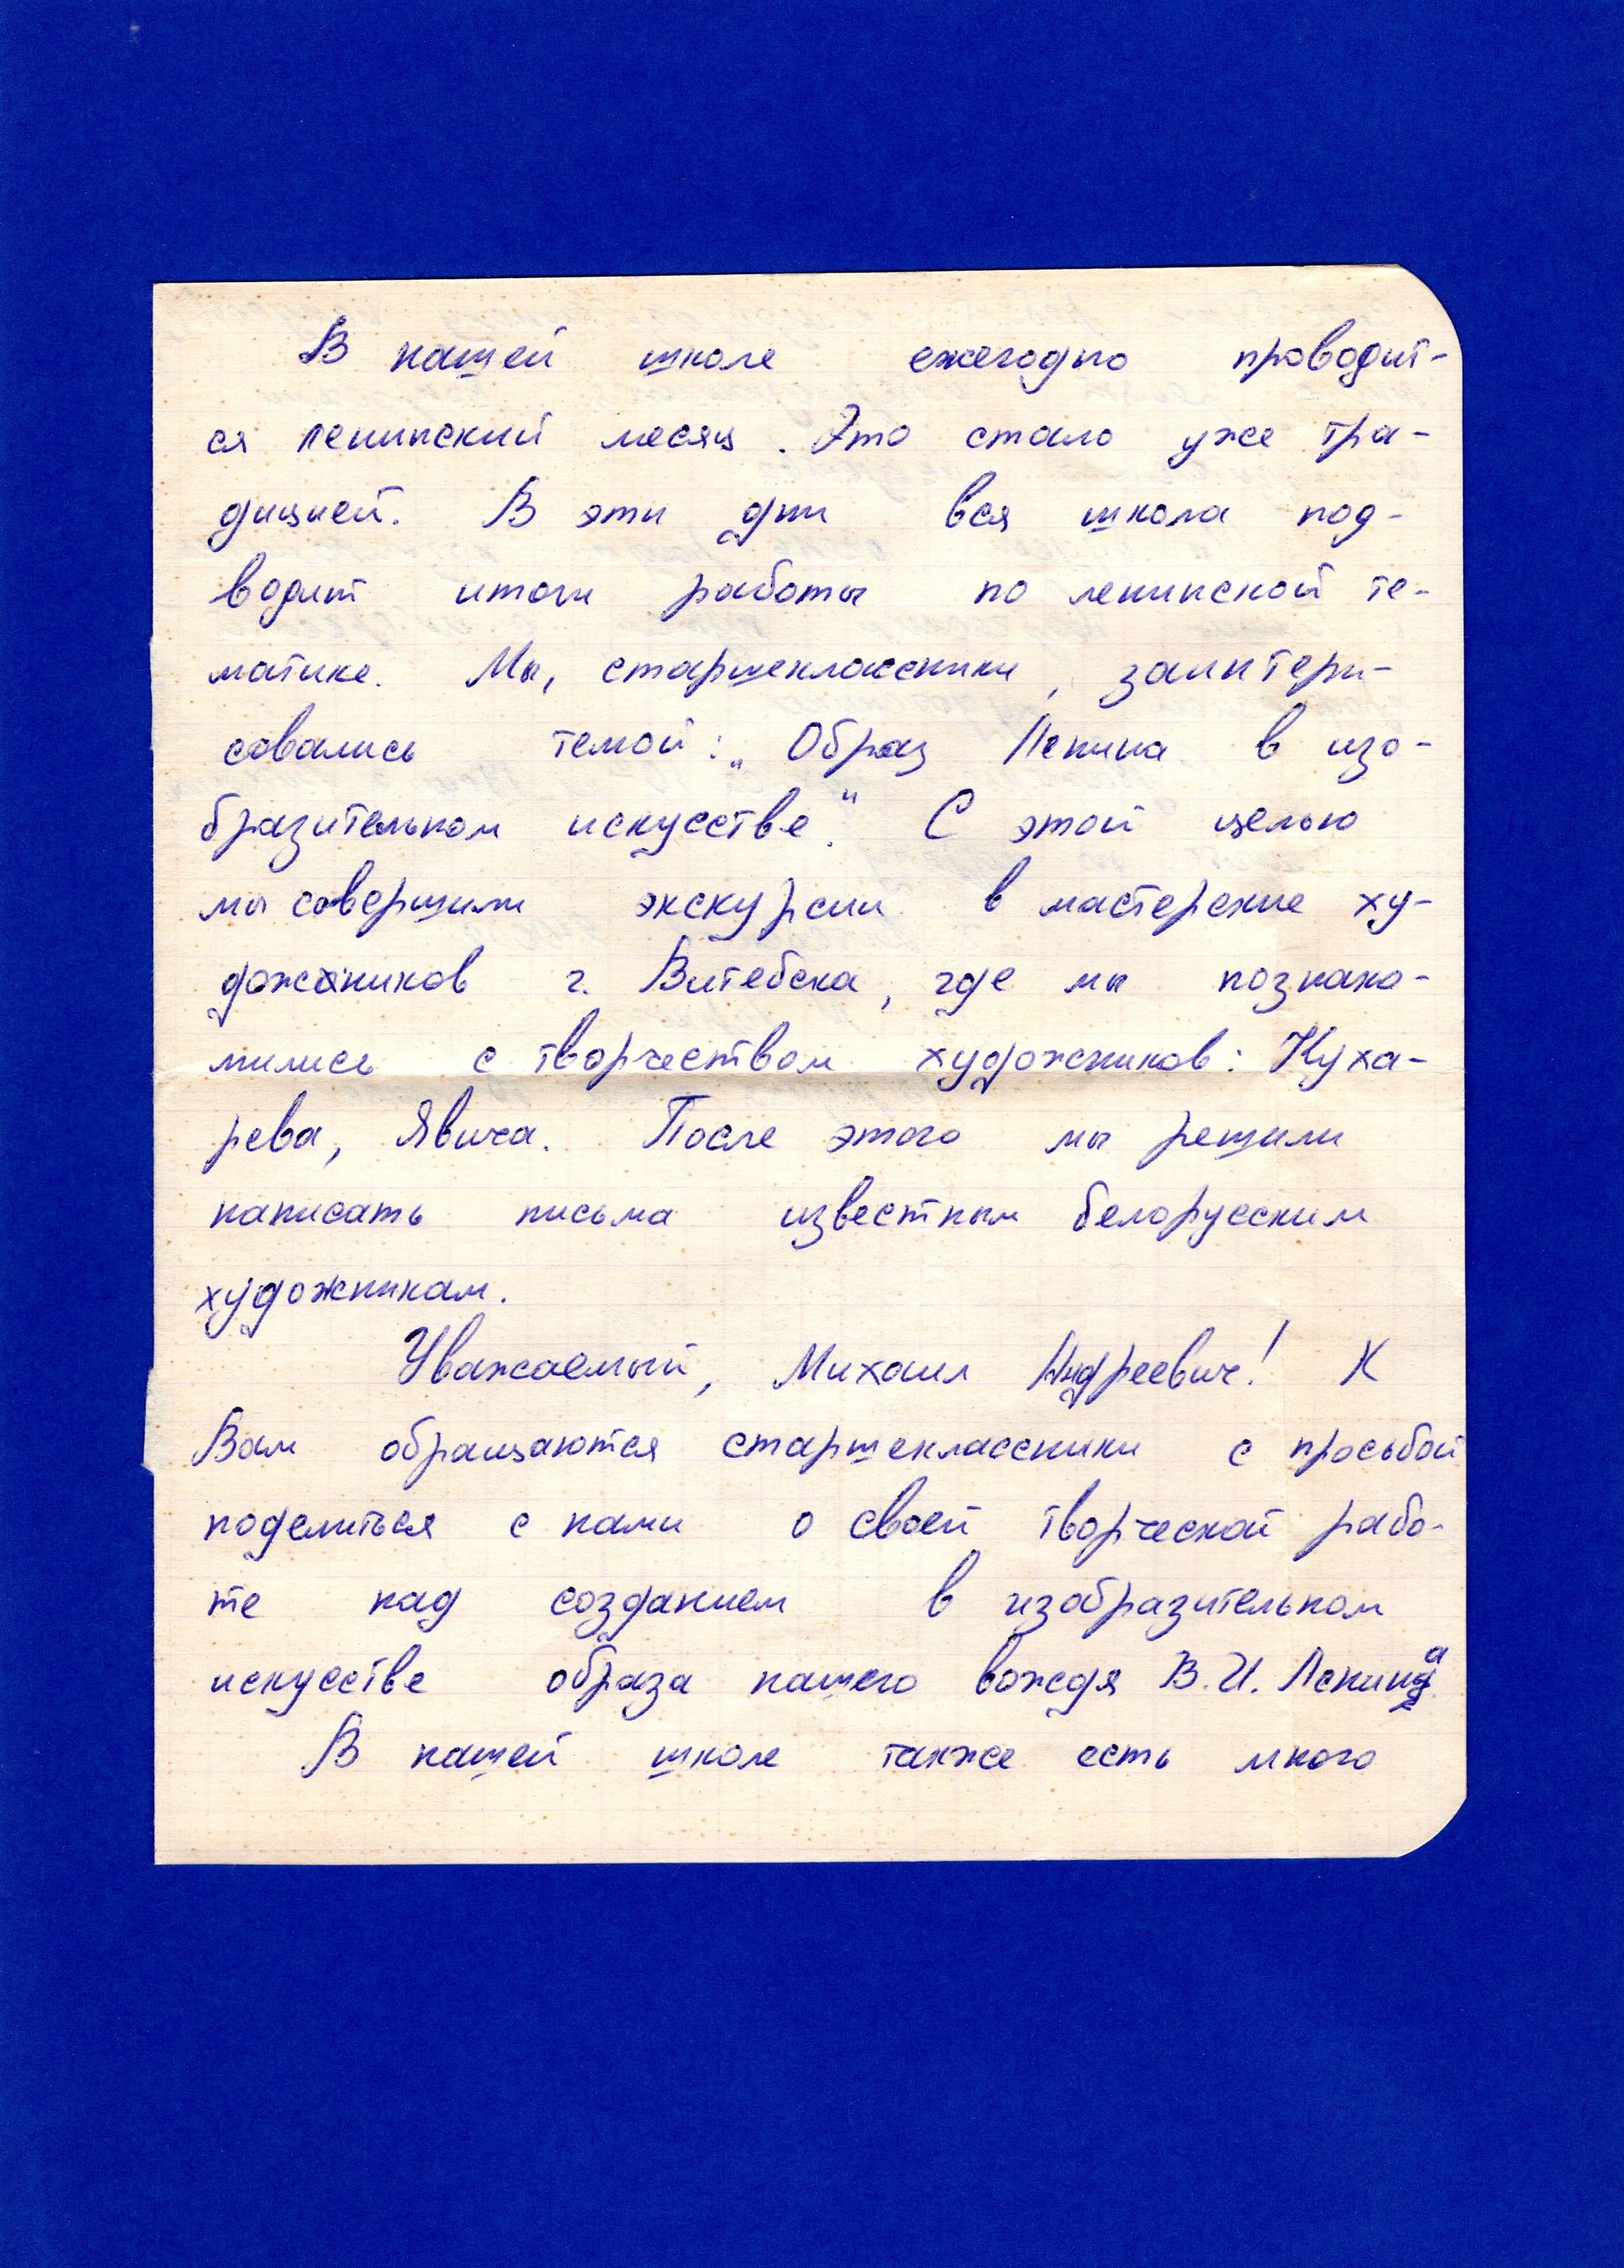 В нашей школе ежегодно проводит-
ся ленинский месяц. Это стало уже тра-
дицией. В эти дни вся школа под-
водит итоги работы по ленинской те-
матике. Мы, старшеклассники, заинтери-
совались темой: „Образ Ленина в изо-
бразительном искусстве." С этой целью
мы совершили экскурсии в мастерские ху-
дожников г. Витебска, где мы познако-
мились с творчеством художников: Куха-
рева, Явича. После этого мы решили
написать письма известным белорусским
художникам.
Уважаемый, Михаил Андреевич! К
Вам обращаются старшеклассники с просьбой
поделиться с нами о своей творческой рабо-
те над созданием в изобразительном
искусстве образа нашего вождя В.И. Ленина
В нашей школе также есть много